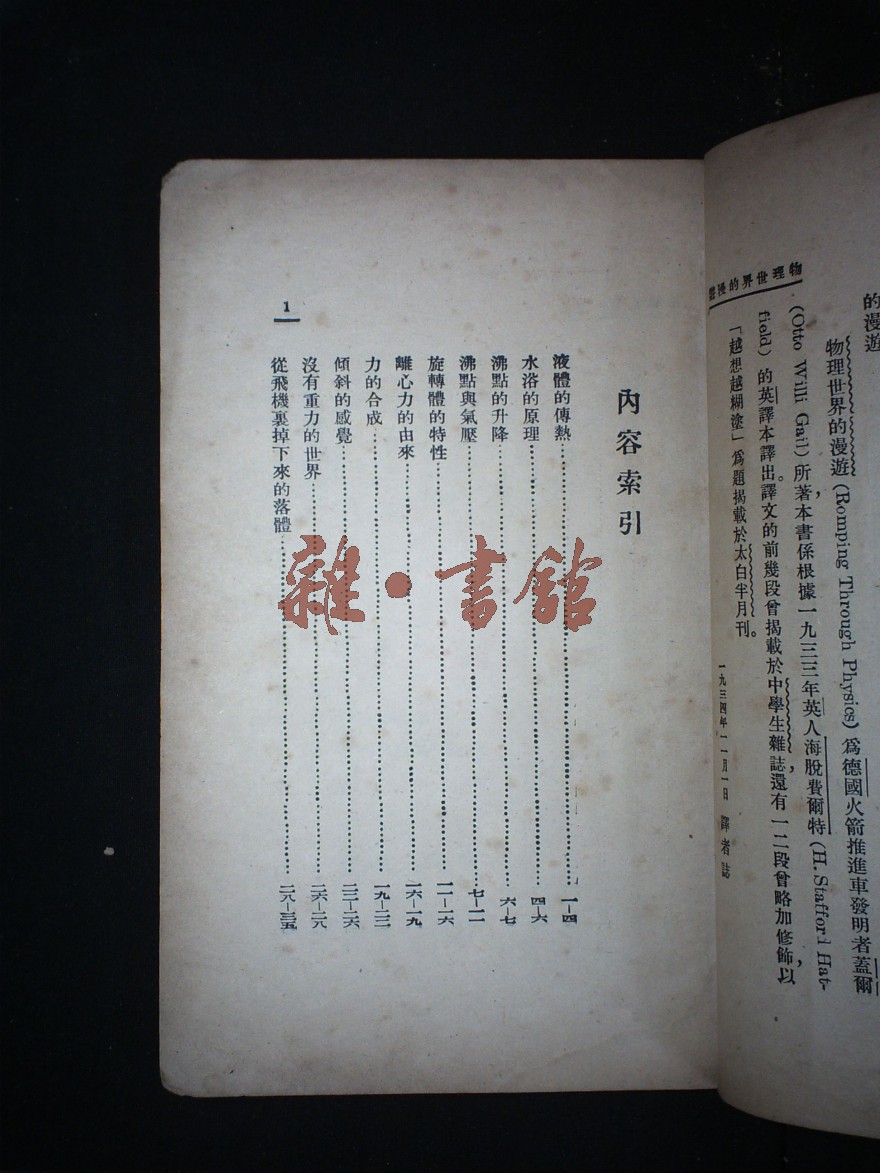 物理世界的漫遊
的漫遊
物理世界的漫遊(Romping Through Physics)爲德國火箭推進車發明者蓋爾
(Otto Willi Gail)所著,本書係根據一九三三年英人海脫費爾特(H. Stafford Hat-
field)的英譯本譯出。譯文的前幾段曾揭載於中學生雜誌,還有一二段曾略加修飾,以
「越想越糊塗」爲題揭載於太白半月刊。
一九三四年一一月一日 譯者誌
內容索引
液體的傳熱………一—四
水浴的原理………四—六
沸點的升降………六—七
沸點與氣壓………七—一一
旋轉體的特性………一一—一六
離心力的由來………一六—一九
力的合成………一九—二二
傾斜的感覺………二二—二六
沒有重力的世界………二六—二八
從飛機裏掉下來的落體………二八—三五
1
雜·書館